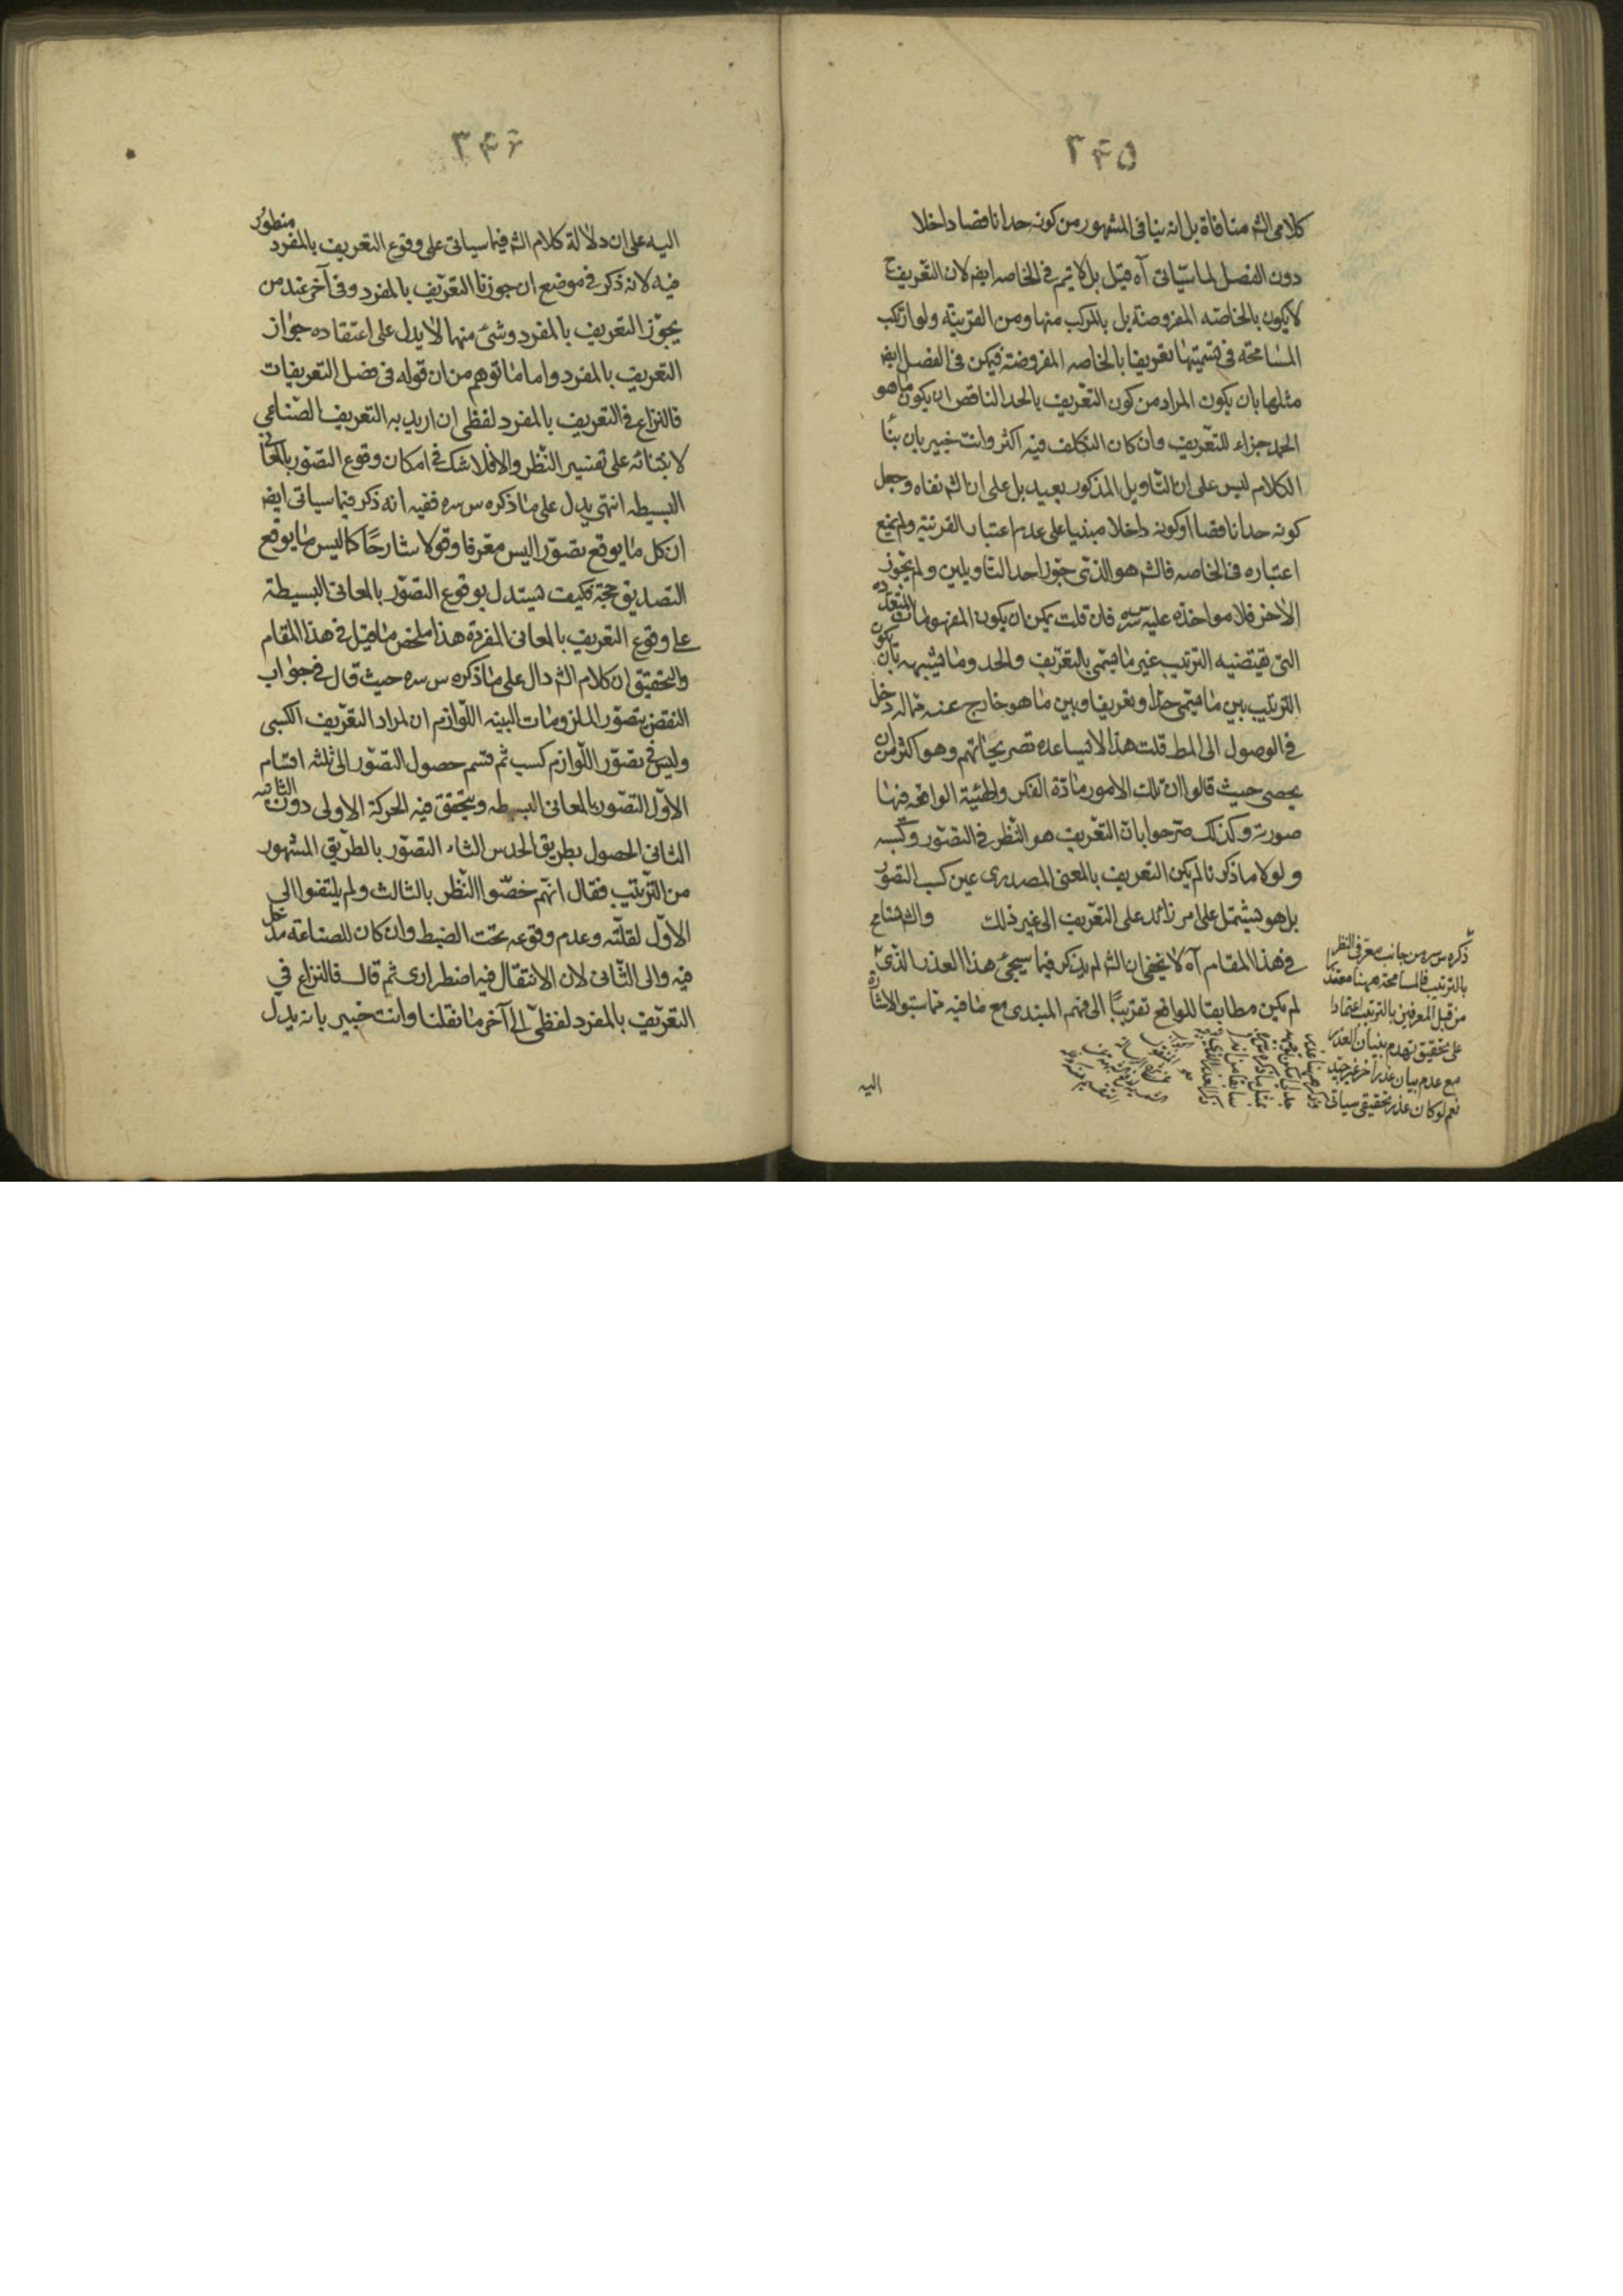 ٣۴۵
كلامى الشم منافاة بل انه ينافى المشهور من كونه حدا ناقصا داخلا
دون الفصل لما سيأتى آه قيل بل لا يتم فى الخاصه ايضا لان التعريف ح
لا يكون بالخاصه المفروضة بل بالمركب منها ومن القرينة ولو ارتكب
المسامحة فى تسميتها تعريفا بالخاصه المفروضة فيكن فى الفصل ايضا
مثلها بان يكون المراد من كون التعريف بالحد الناقص ان يكون ما هو
الحد جزاء للتعريف وان كان التكلف فيه اكثر وانت خبير بان بنأ
الكلام ليس على ان التأويل المذكور بعيد بل على ان الش نفاه وجعل
كونه حدا ناقصا او كونه داخلا مبنيا على عدم اعتبار القرينة ولم يمنع
اعتباره فى الخاصه فالشم هو الذى جوز احد التأويلين ولم يجوز
الاخر فلا مواخذه عليه س سره فان قلت يمكن ان يكون المفهومات المتعدده
التى يقتضيه الترتيب غير ما يسمى بالتعريف والحد وما يشبهه بان يكون
الترتيب بين ما يسمى حدا وتعريفا وبين ما هو خارج عنه مما له دخل
فى الوصول الى المط قلت هذا لا يساعده تصريحاتهم وهو اكثر من ان
يحصى حيث قالوا ان تلك الامور مادة الفكر والهيئة الواقعه فيها
صورته وكذلك صرحوا بان التعريف هو النظر فى التصور وكسبه
ولولا ما ذكرنا لم يكن التعريف بالمعنى المصدرى عين كسب التصور
بل هو يشتمل على امر زائد على التعريف الى غير ذلك والش تسامح
فى هذا المقام آه لا يخفى ان الشم لم يذكر فيما سيجئ هذا العذر الذى
لم يكن مطابقا للواقع تقريبًا الى فهم المبتدى مع ما فيه مما سبق الاشارة
اليه
ذكره س سره من جانب معرفى النظر
بالترتيب فالمسامحة ههنا معتذرا
من قبل المعرفين بالترتيب اعتمادا
على تحقيق تهدم بنيان العذر
مع عدم بيان عذر آخر غير جيد
نعم لو كان عذر تحقيقى سيأتى
٣۴۶
اليه على ان دلالة كلام الشم فيما سيأتى على وقوع التعريف بالمفرد منظور
فيه لانه ذكر فى موضع ان جوزنا التعريف بالمفرد وفى آخر عند من
يجوز التعريف بالمفرد وشئ منهما لا يدل على اعتقاده جواز
التعريف بالمفرد واما ما توهم من ان قوله فى فصل التعريفات
فالنزاع فى التعريف بالمفرد لفظى ان اريد به التعريف الصناعى
لابتنائه على تفسير النظر والا فلا شك فى امكان وقوع التصور بالمعانى
البسيطه انتهى يدل على ما ذكره س سره ففيه انه ذكر فيما سيأتى ايضا
ان كل ما يوقع تصورا ليس معرفا وقولا شارحًا كما ليس ما يوقع
التصديق حجة فكيف يستدل بوقوع التصور بالمعانى البسيطة
على وقوع التعريف بالمعانى المفردة هذا ملخص ما قيل فى هذا المقام
والتحقيق ان كلام الشم دال على ما ذكره س سره حيث قال فى جواب
النقض بتصور الملزومات البينه اللوازم ان المراد التعريف الكسبى
وليس فى تصور اللوازم كسب ثم قسم حصول التصور الى ثلثه اقسام
الاول التصور بالمعانى البسيطه ويتحقق فيه الحركة الاولى دون الثانيه
الثانى الحصول بطريق الحدس الثالث التصور بالطريق المشهور
من الترتيب فقال انهم خصوا النظر بالثالث ولم يلتفتوا الى
الاول لقلته وعدم وقوعه تحت الضبط وان كان للصناعة مدخل
فيه والى الثانى لان الانتقال فيه اضطرارى ثم قال فالنزاع فى
التعريف بالمفرد لفظى الى آخر ما نقلنا وانت خبير بانه يدل